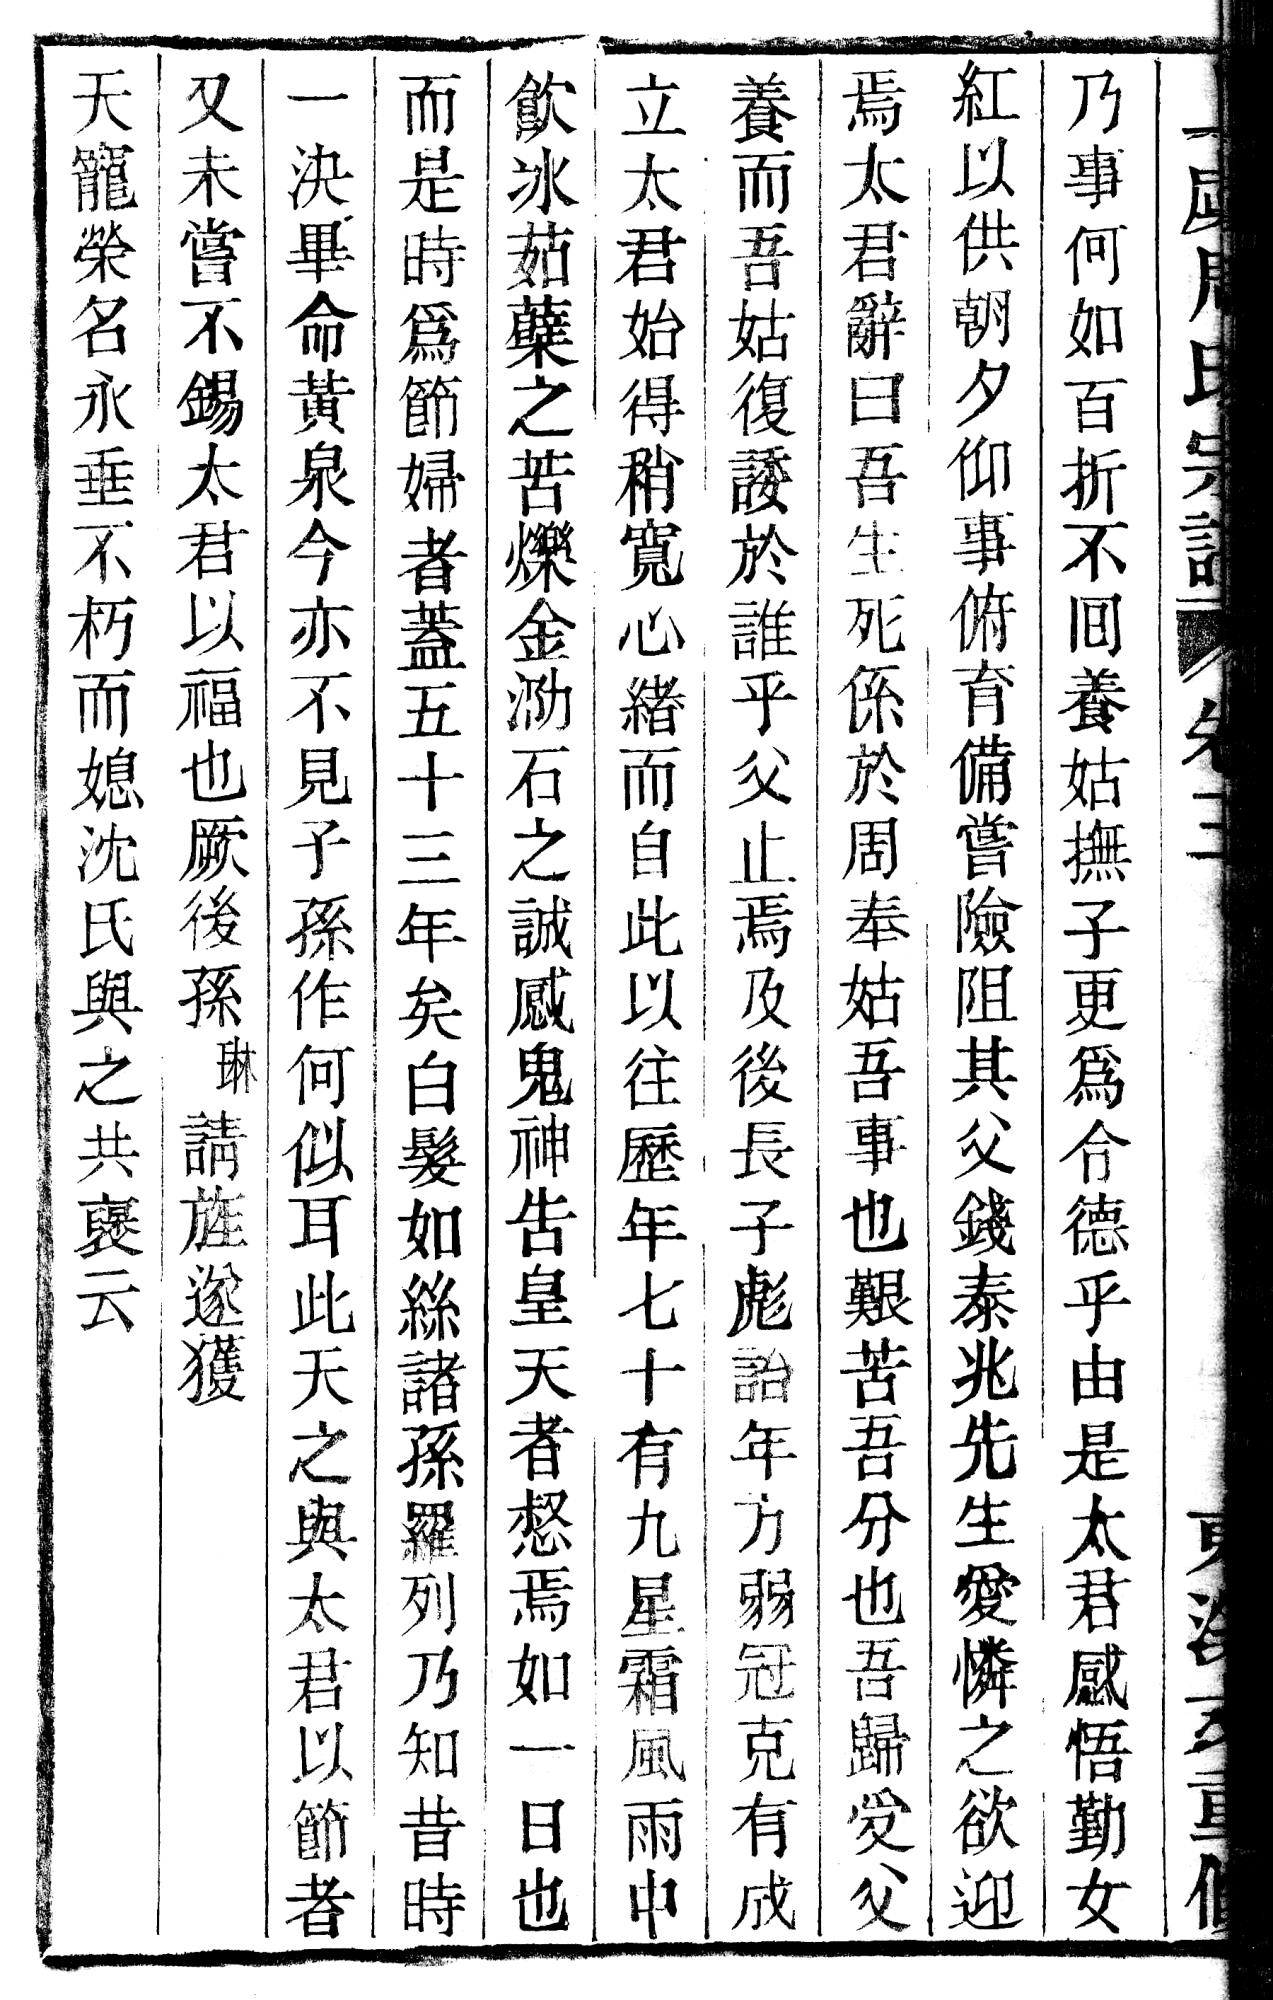 周氏宗譜 卷三
乃事何如百折不回養姑撫子更爲合德乎由是太君感悟勤女
紅以供朝夕仰事俯育備嘗險阻其父錢泰兆先生愛憐之欲迎
焉太君辭曰吾生死係於周奉姑吾事也艱苦吾分也吾歸受父
養而吾姑復諉於誰乎父止焉及後長子彪詒年方弱冠克有成
立太君始得稍寬心緒而自此以往歷年七十有九星霜風雨中
飲冰茹蘗之苦爍金泐石之誠感鬼神告皇天者惄焉如一日也
而是時爲節婦者蓋五十三年矣白髮如絲諸孫羅列乃知昔時
一決畢命黃泉今亦不見子孫作何似耳此天之與太君以節者
又未嘗不錫太君以福也厥後孫琳請旌遂獲
天寵榮名永垂不朽而媳沈氏與之共襃云